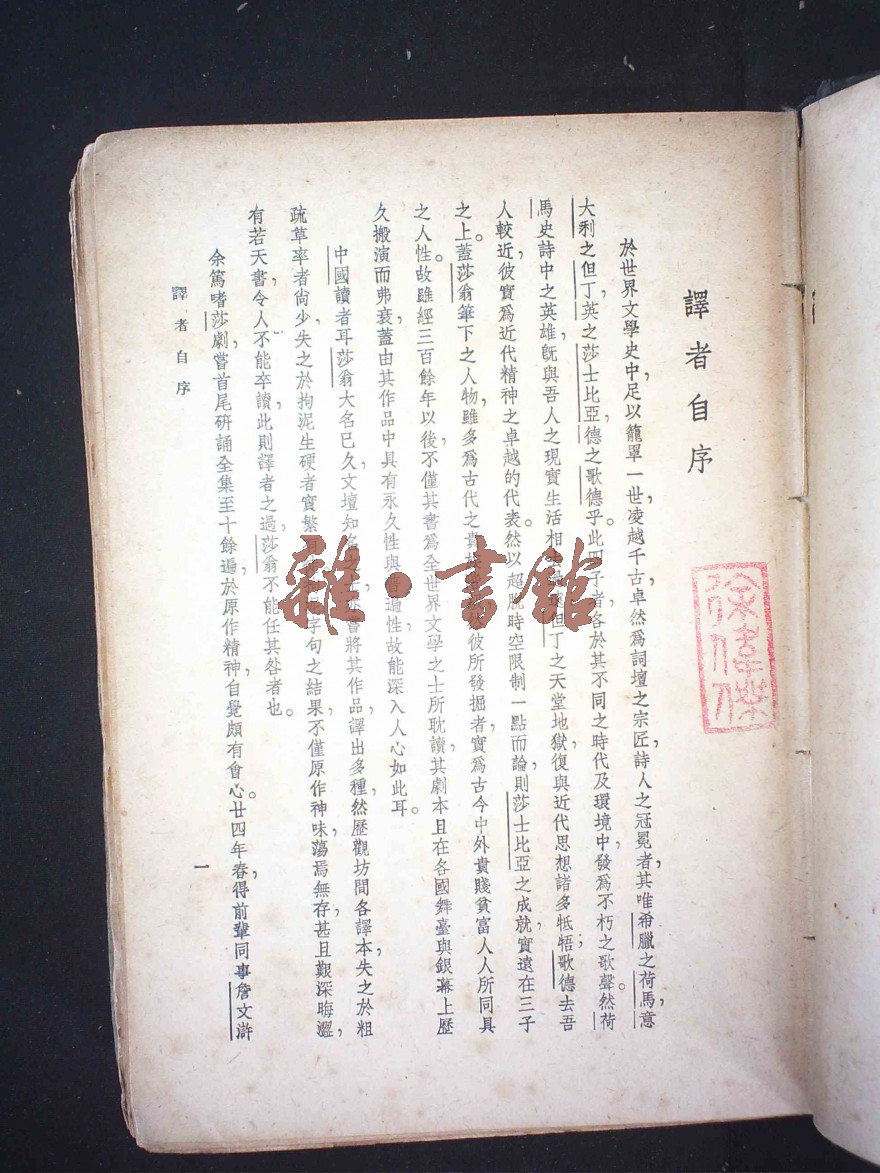 譯者自序
於世界文學史中，足以籠罩一世，凌越千古，卓然爲詞壇之宗匠，詩人之冠冕者，其唯希臘之荷馬，意
大利之但丁，英之莎士比亞，德之歌德乎。此四子者，各於其不同之時代及環境中，發爲不朽之歌聲。然荷
馬史詩中之英雄，旣與吾人之現實生活相 但丁之天堂地獄，復與近代思想諸多牴牾；歌德去吾
人較近，彼實爲近代精神之卓越的代表。然以超脫時空限制一點而論，則莎士比亞之成就，實遠在三子
之上。蓋莎翁筆下之人物，雖多爲古代之貴 彼所發掘者，實爲古今中外貴賤貧富人人所同具
之人性。故雖經三百餘年以後，不僅其書爲全世界文學之士所耽讀，其劇本且在各國舞臺與銀幕上歷
久搬演而弗衰，蓋由其作品中具有永久性與普遍性，故能深入人心如此耳。
中國讀者耳莎翁大名已久，文壇知名 嘗將其作品，譯出多種，然歷觀坊間各譯本，失之於粗
疏草率者尙少，失之於拘泥生硬者實繁有 字句之結果，不僅原作神味，蕩焉無存，甚且艱深晦澀，
有若天書，令人不能卒讀，此則譯者之過，莎翁不能任其咎者也。
余篤嗜莎劇，嘗首尾硏誦全集至十餘遍，於原作精神，自覺頗有會心。廿四年春，得前輩同事詹文滸
譯者自序
一
雜·書館